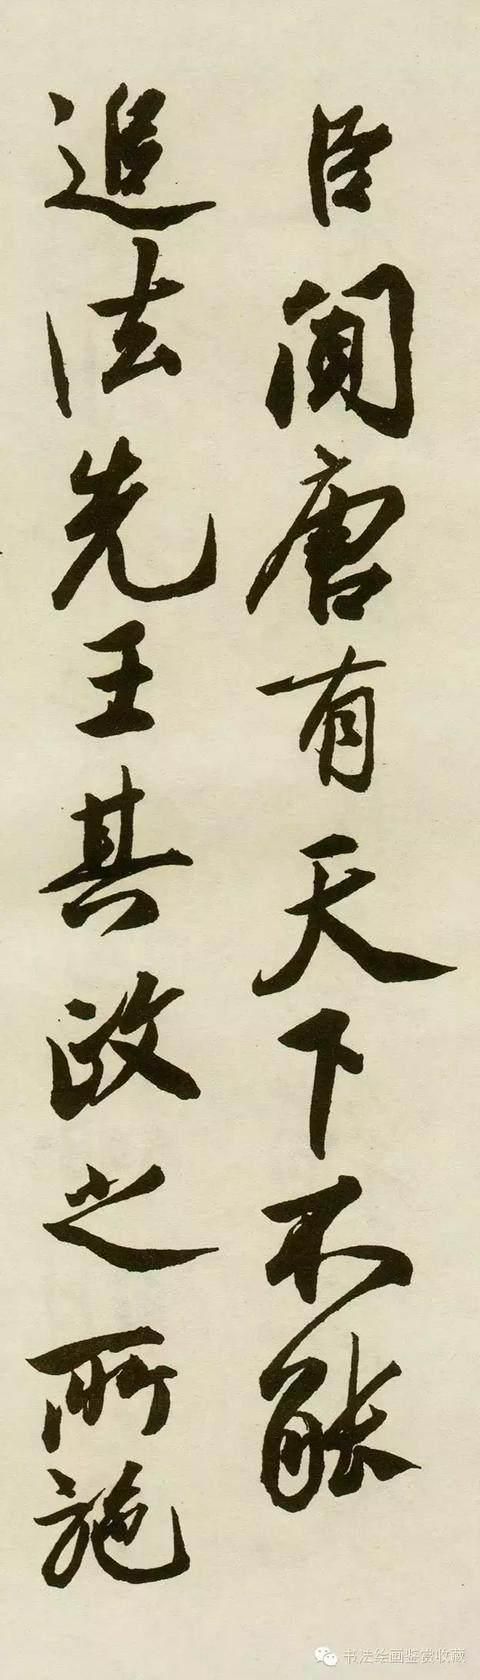 臣聞唐有天下不能
追法先王其政之所施
书法绘画鉴赏收藏